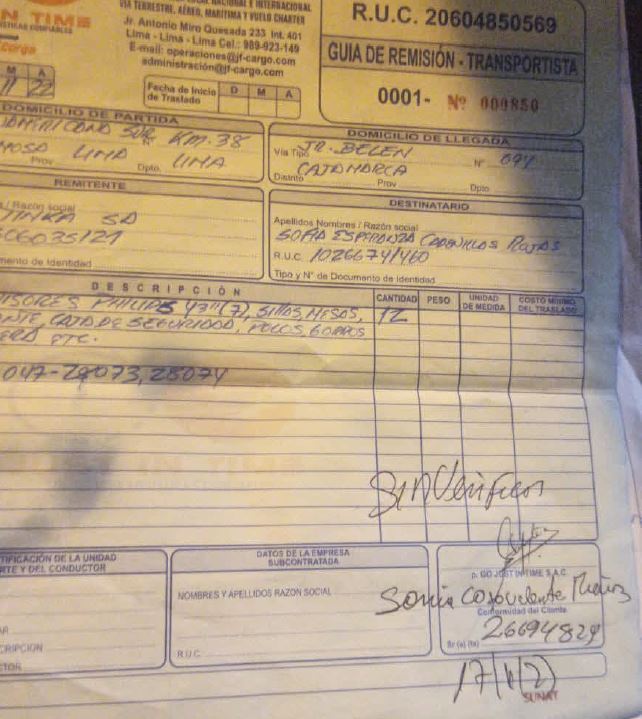 LOCAL NACIONAL E INTERNACIONAL
VIA TERRESTRE, AÉREO, MARITIMA Y VUELO CHARTER
Jr. Antonio Miro Quesada 233 Int. 401
Lima - Lima - Lima Cel.: 989-923-149
E-mail: operaciones@jf-cargo.com
administración@jf-cargo.com
IN TIME
cargo
R.U.C. 20604850569
GUIA DE REMISIÓN - TRANSPORTISTA
0001- Nº 000850
M A
11 22
Fecha de Inicio de Traslado D M A
DOMICILIO DE PARTIDA
SUR KM. 38
LIMA LIMA
Prov. Dpto.
DOMICILIO DE LLEGADA
Via Tipo JR. BELEN Nº 694
CAJAMARCA
Distrito Prov Dpto
REMITENTE
/ Razón social
TINKA SA
6035121
mento de Identidad
DESTINATARIO
Apellidos Nombres / Razón social
SOFIA ESPERANZA CABANILLAS ROJAS
R.U.C. 10266741460
Tipo y N° de Documento de Identidad
DESCRIPCIÓN CANTIDAD PESO UNIDAD DE MEDIDA COSTO MINIMO DEL TRASLADO
VISORES PHILIPS 43"(7), SILLAS, MESAS, 12
CAJA DE SEGURIDAD, POLOS, GORROS
ETC.
047-28073, 28074
Sin Verificar
TIFICACIÓN DE LA UNIDAD
RTE Y DEL CONDUCTOR
DATOS DE LA EMPRESA SUBCONTRATADA
NOMBRES Y APELLIDOS RAZON SOCIAL
R.U.C.
p. GO JUST IN TIME S.A.C.
Sonia
Conformidad del Cliente
Sr (a) (ta) 26694829
SUNAT